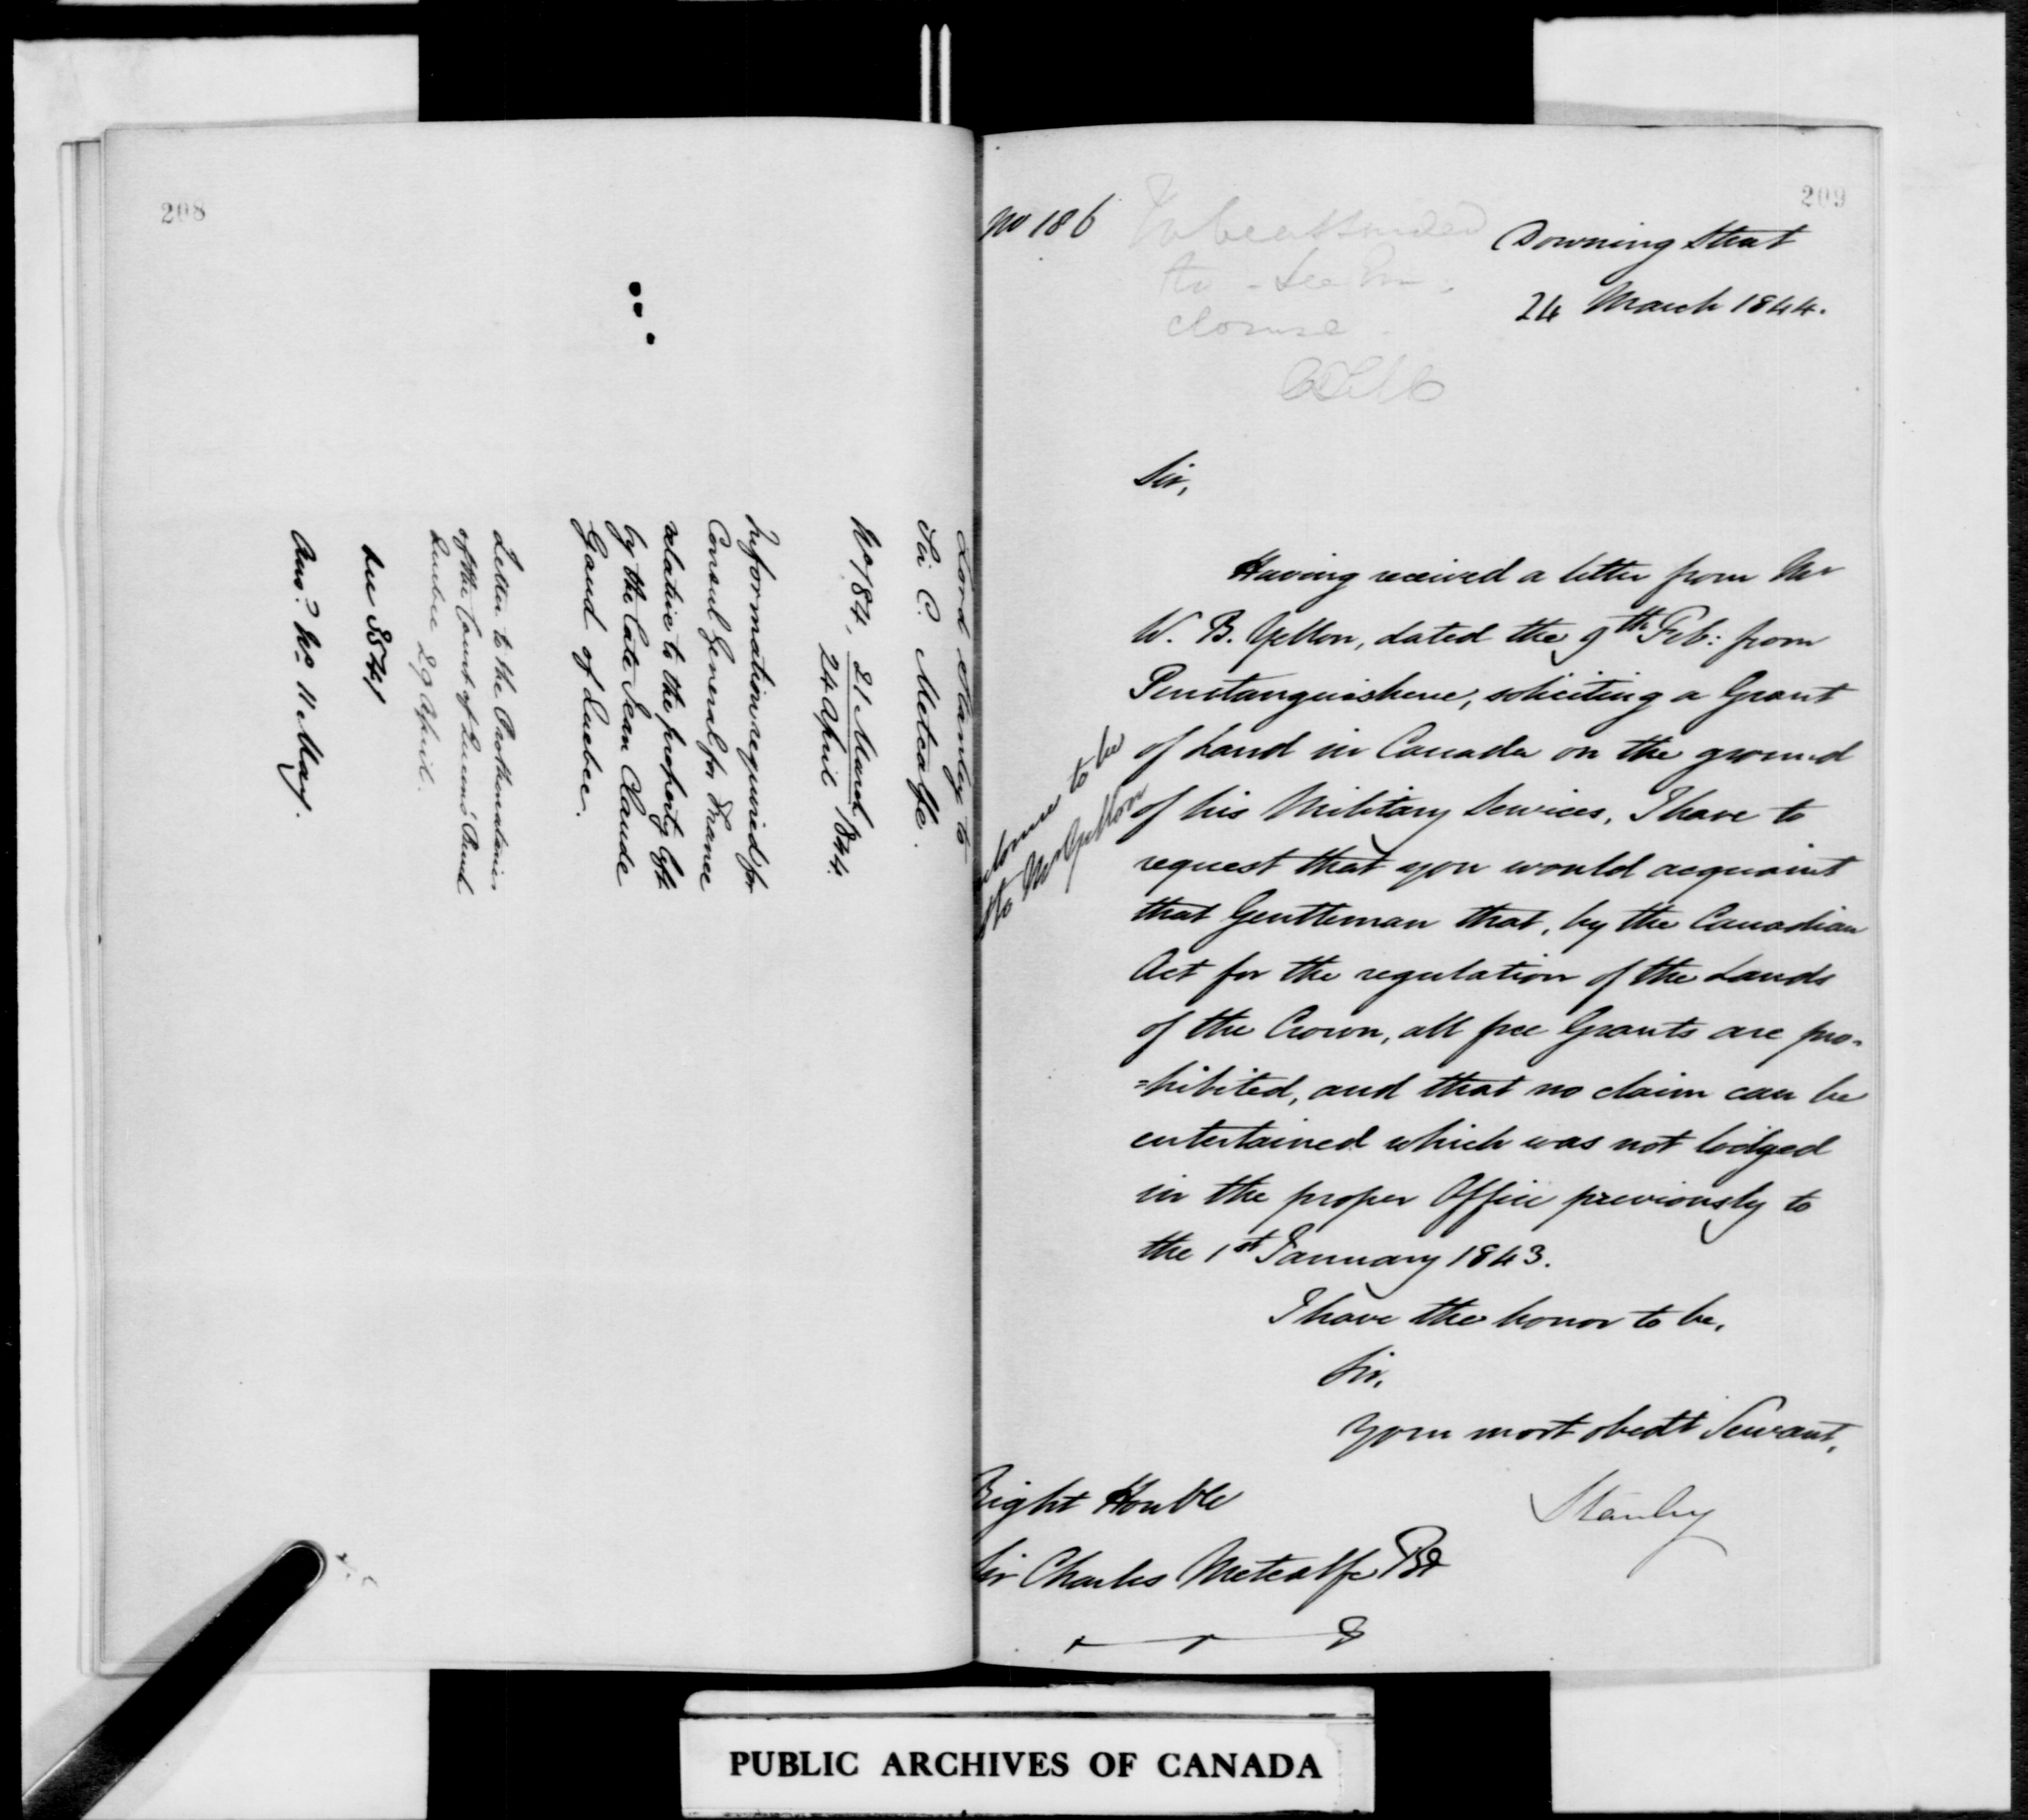 208
Lord Stanley to
Sir C. Metcalfe.
No 184, 21 March
24 April 1844.
Information required for
Consul General for France
relative to the property left
by the late Jean Claude
Gaud of Quebec.
Letter to the Prothonotaries
of the Court of Queen's Bench
Quebec 29 April.
Ansd. No. 11 May.
209
No 186
To be attended
to - See En-
closure
Downing Street
24 March 1844.
Sir,
Having received a letter from Mr
W. B. dated the 9th Feb: from
Penetanguishene, soliciting a Grant
of Land in Canada on the ground
of his Military Services, I have to
request that you would acquaint
that Gentleman that, by the Canadian
Act for the regulation of the Lands
of the Crown, all free Grants are pro-
=hibited, and that no claim can be
entertained which was not lodged
in the proper Office previously to
the 1st January 1843.
I have the honor to be,
Sir,
Your most obedt Servant,
Stanley
to be
to Mr
Right Honble
Sir Charles Metcalfe Bt
PUBLIC ARCHIVES OF CANADA